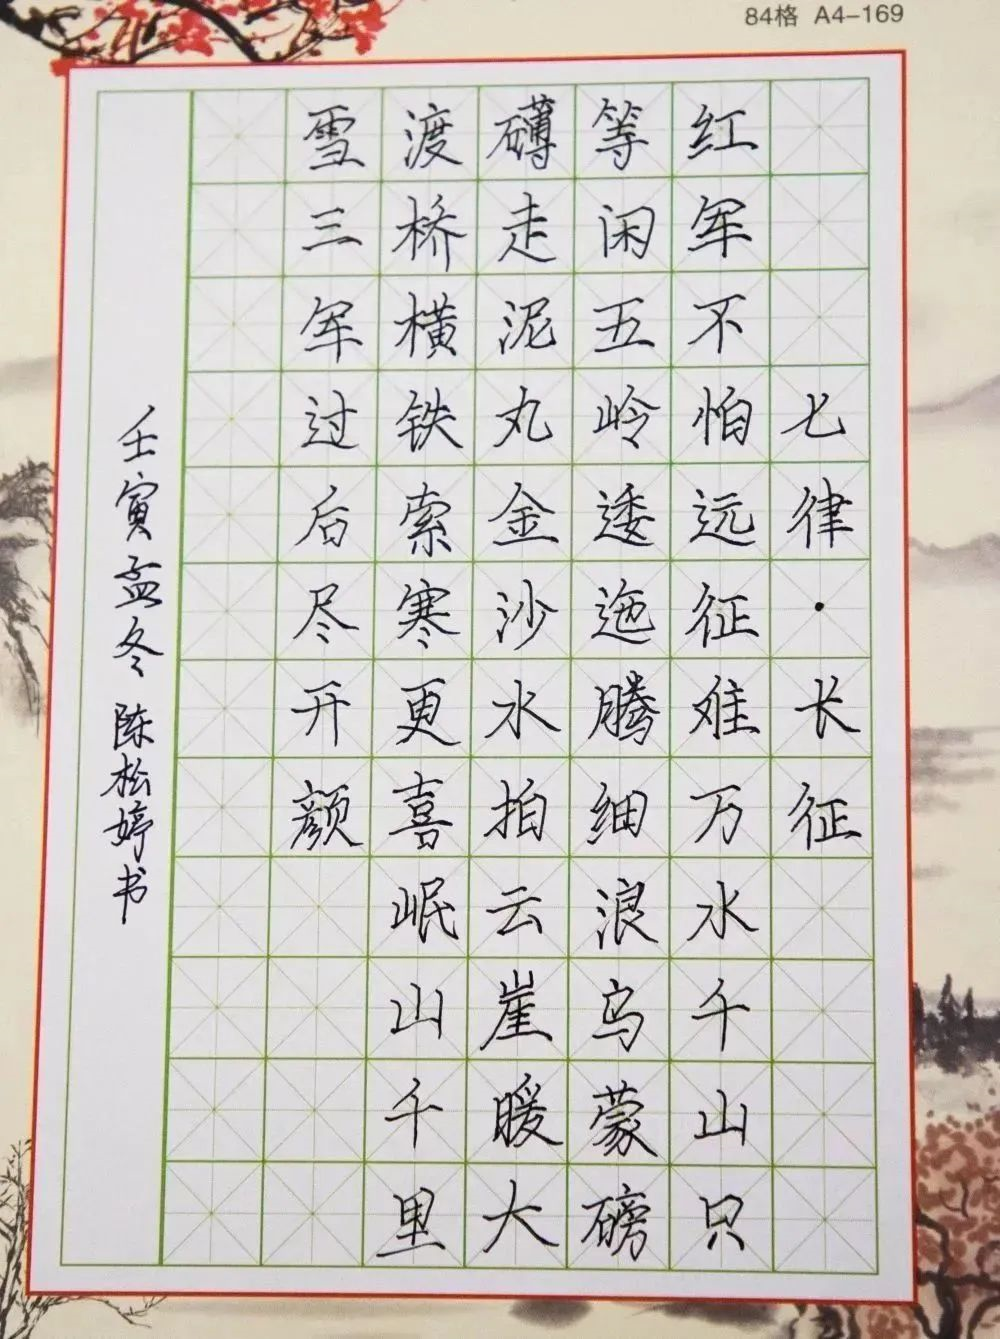 84格 A4-169
七律·长征
红军不怕远征难万水千山只
等闲五岭逶迤腾细浪乌蒙磅
礴走泥丸金沙水拍云崖暖大
渡桥横铁索寒更喜岷山千里
雪三军过后尽开颜
壬寅孟冬 陈松婷书